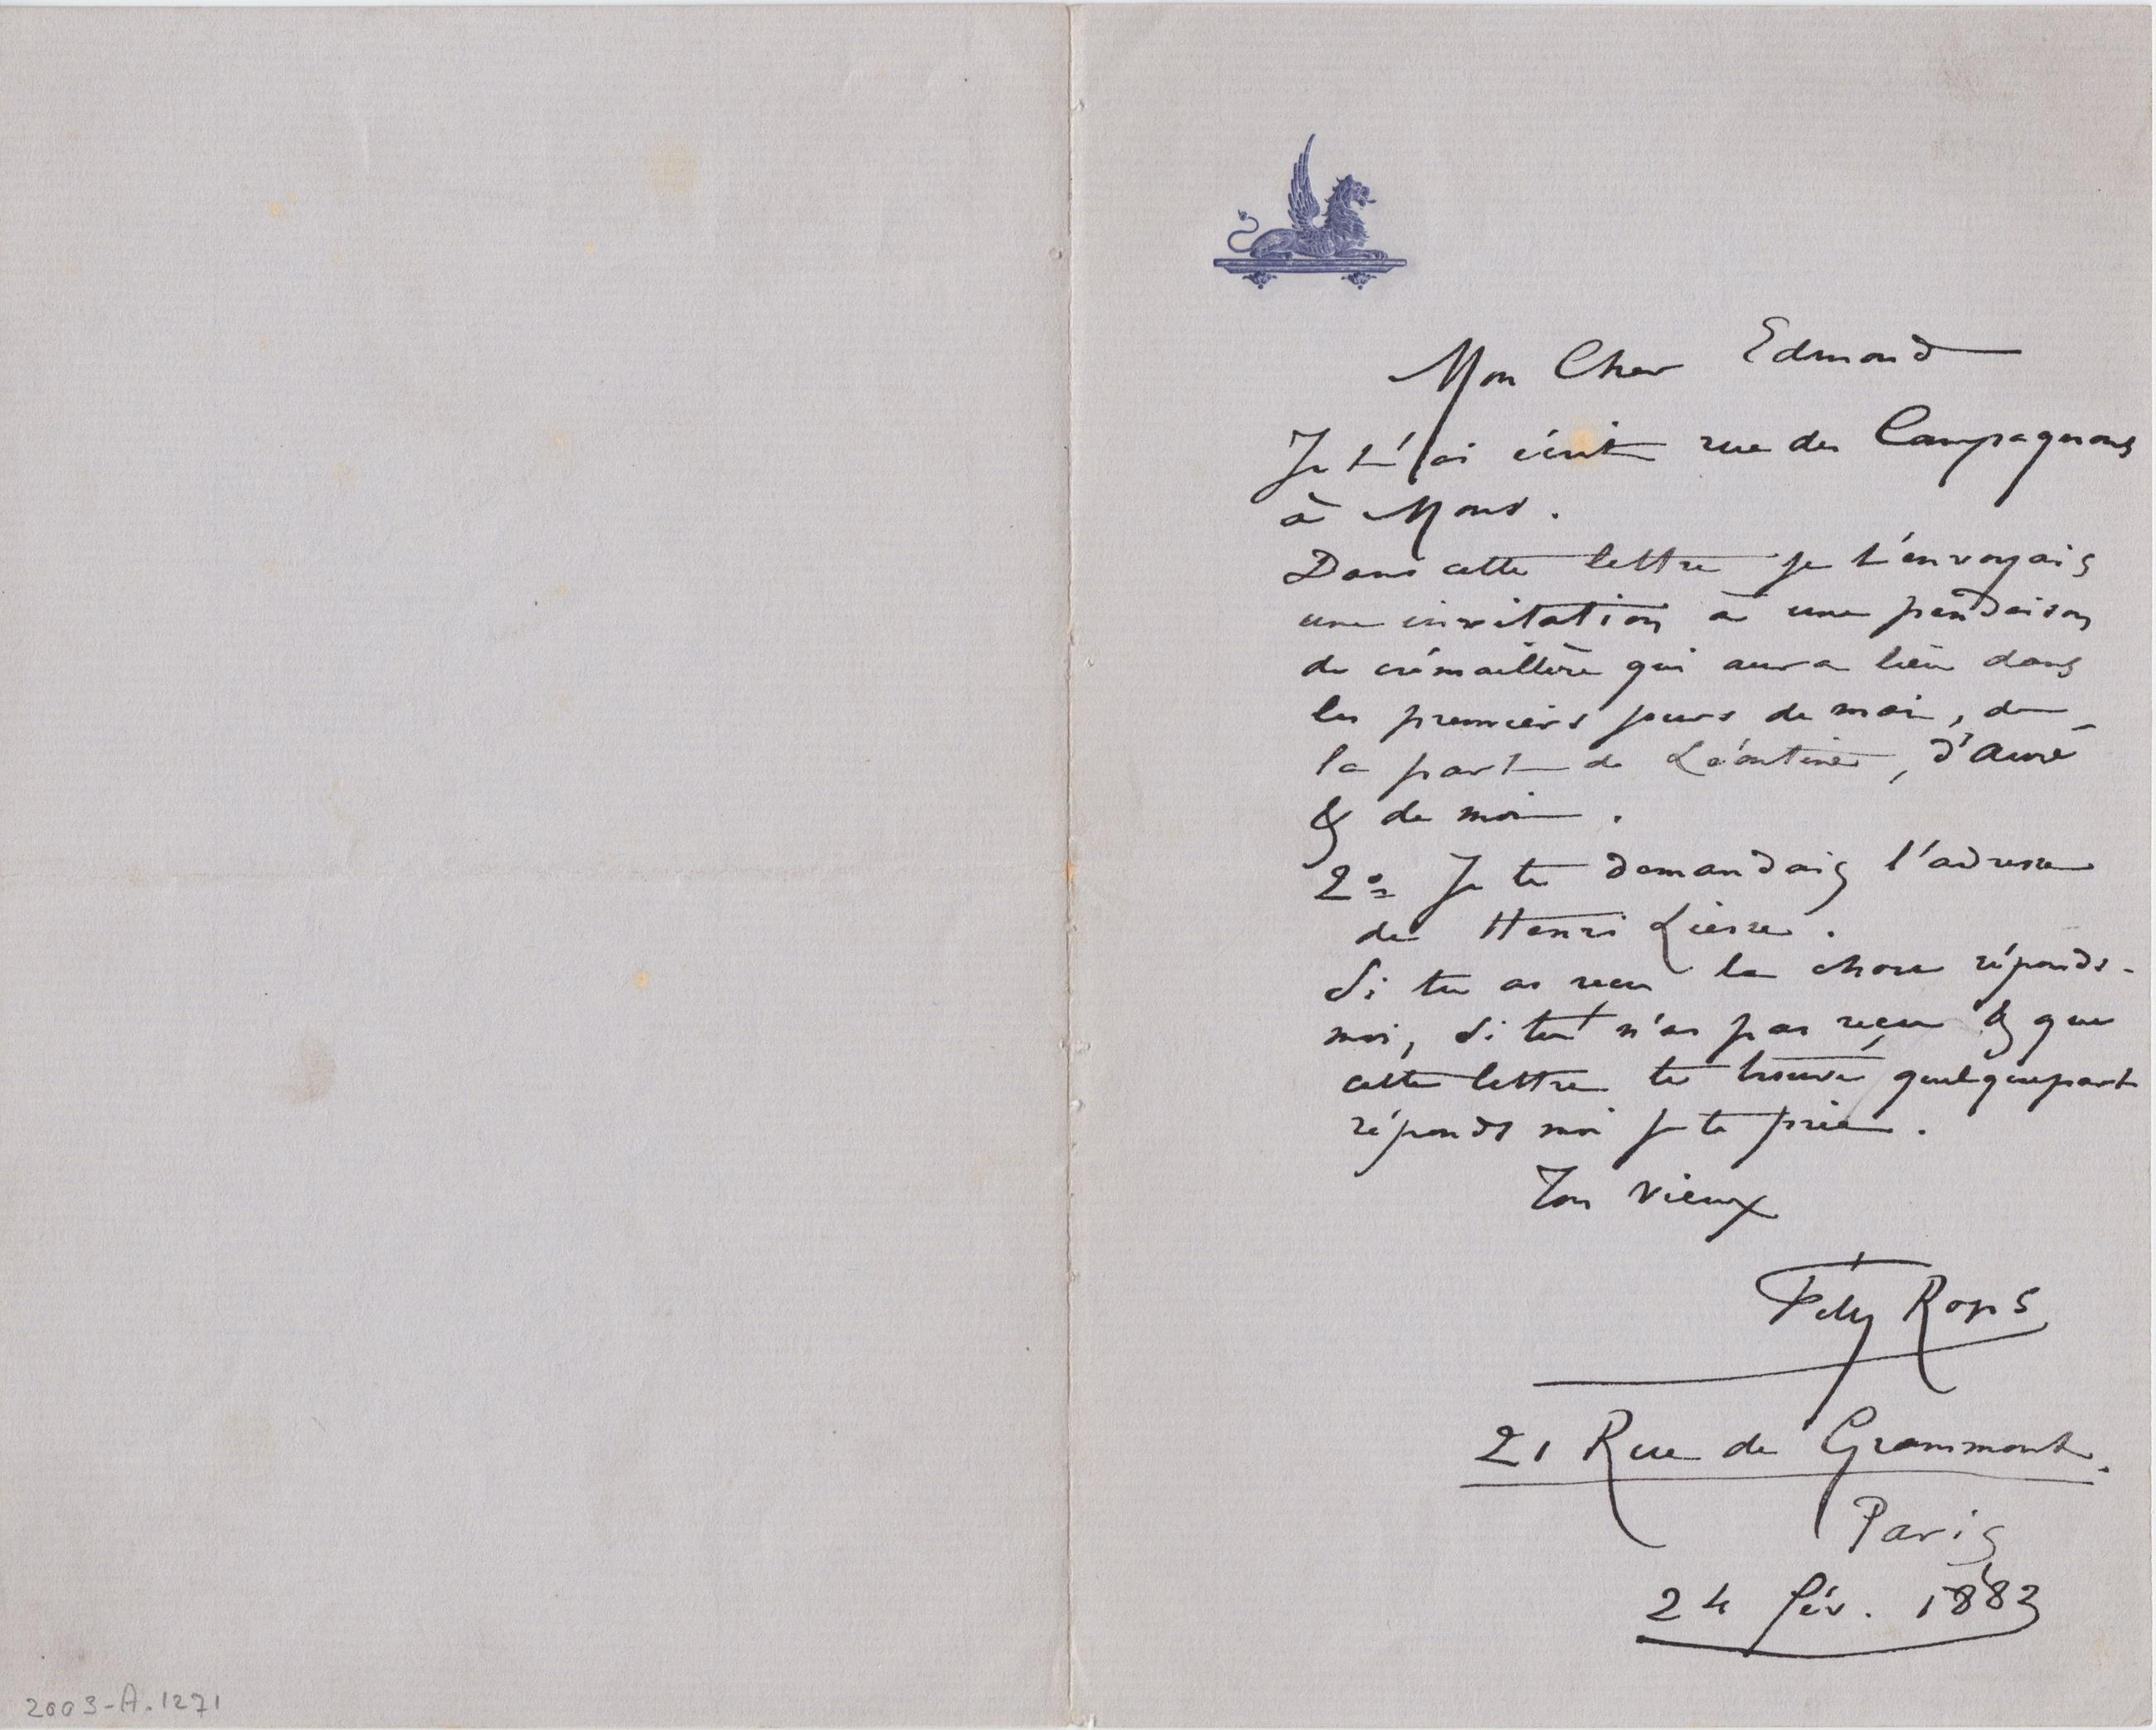 Mon Cher Edmond
Je t'ai écrit rue des Compagnons
à Mons.
Dans cette lettre je t'envoyais
une invitation à une pendaison
de crémaillère qui aura lieu dans
les premiers jours de mai, de
la part de Léontine, d'Auré
& de moi.
2º Je te demandais l'adresse
de Henri Liesse.
Si tu as reçu la chose réponds-
moi, si tu n'as pas reçu & que
cette lettre te trouve quelquepart
réponds moi je te prie.
Ton vieux
Fély Rops
21 Rue de Grammont.
Paris
24 fév. 1883
2003-A.1271